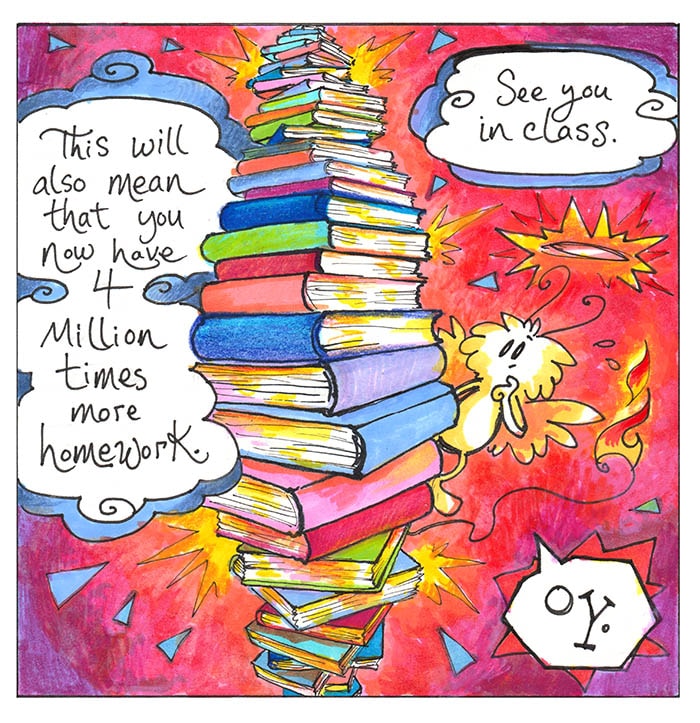 This will
also mean
that you
now have
4
Million
times
more
homework.
See you
in class.
OY.